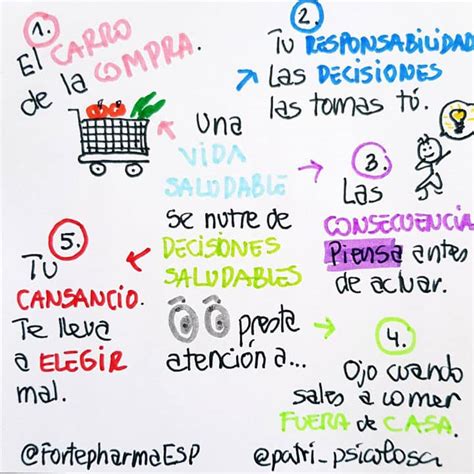 1.
El CARRO
de la COMPRA.
2.
Tu RESPONSABILIDAD
Las DECISIONES
las tomas tú.
Una
VIDA
SALUDABLE
Se nutre de
DECISIONES
SALUDABLES
presta
atención a...
3.
Las
CONSECUENCIA
Piensa antes
de actuar.
4.
Ojo cuando
sales a comer
FUERA de CASA.
5.
Tu
CANSANCIO.
Te lleva
a ELEGIR
mal.
@FortepharmaESP
@patri_psicolosa